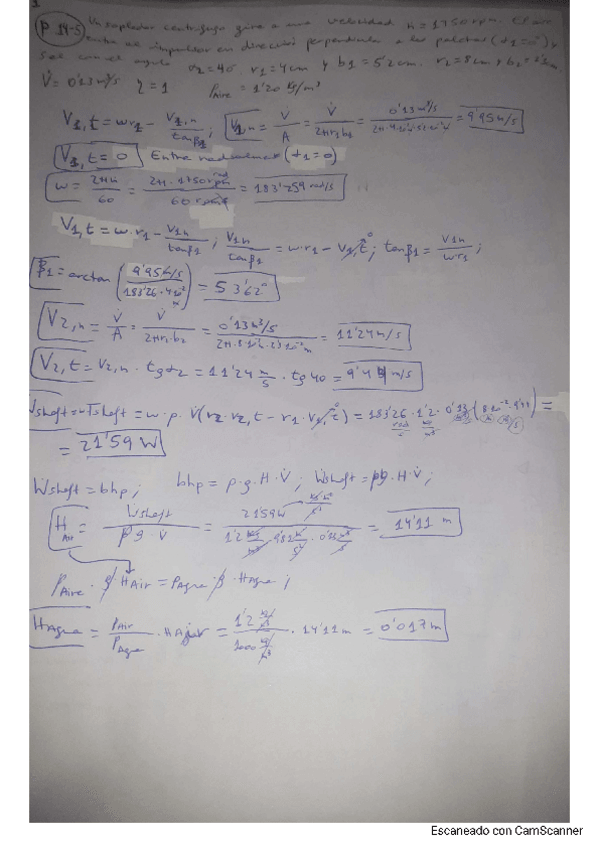 P 14-5 Un soplador centrífugo gira a una velocidad n = 1750 rpm. El aire
entra al impulsor en dirección perpendicular a las paletas (α1 = 0°) y
sale con el ángulo α2 = 40. r1 = 4cm y b1 = 5'2cm. r2 = 8cm y b2 = 2'3cm
V̇ = 0'13 m³/s η = 1 ρAire = 1'20 kg/m³
V1,t = w r1 - V1,n/tanβ1 ; V1,n = V̇/A = V̇/2πr1b1 = 0'13 m³/s / 2π·4·10⁻²·5'2·10⁻² = 9'95 m/s
V1,t = 0 Entra radialmente (α1 = 0)
w = 2πn/60 = 2π·1750 rpm/60 = 183'259 rad/s
V1,t = w·r1 - V1n/tanβ1 ; V1n/tanβ1 = w·r1 - V1,t ; tanβ1 = V1n/w·r1 ;
β1 = arctan (9'95 m/s / 183'26·4·10⁻²) = 53'62°
V2,n = V̇/A = V̇/2πr2·b2 = 0'13 m³/s / 2π·8·10⁻²·2'3·10⁻² m = 11'24 m/s
V2,t = V2,n · tgα2 = 11'24 m/s · tg 40 = 9'44 m/s
Ẇshaft = wTshaft = w·ρ·V̇(r2·V2,t - r1·V1,t) = 183'26·1'2·0'13(8·10⁻²·9'44) =
= 21'59 W
Ẇshaft = bhp ; bhp = ρ·g·H·V̇ ; Ẇshaft = ρg·H·V̇ ;
HAir = Ẇshaft / ρ g V̇ = 21'59W / 1'2 kg/m³ · 9'81 m/s² · 0'13 m³/s = 14'11 m
ρAire · g HAir = ρAgua · g · HAgua ;
HAgua = ρAir/ρAgua · HAir = 1'2 kg/m³ / 1000 kg/m³ · 14'11m = 0'017m
Escaneado con CamScanner